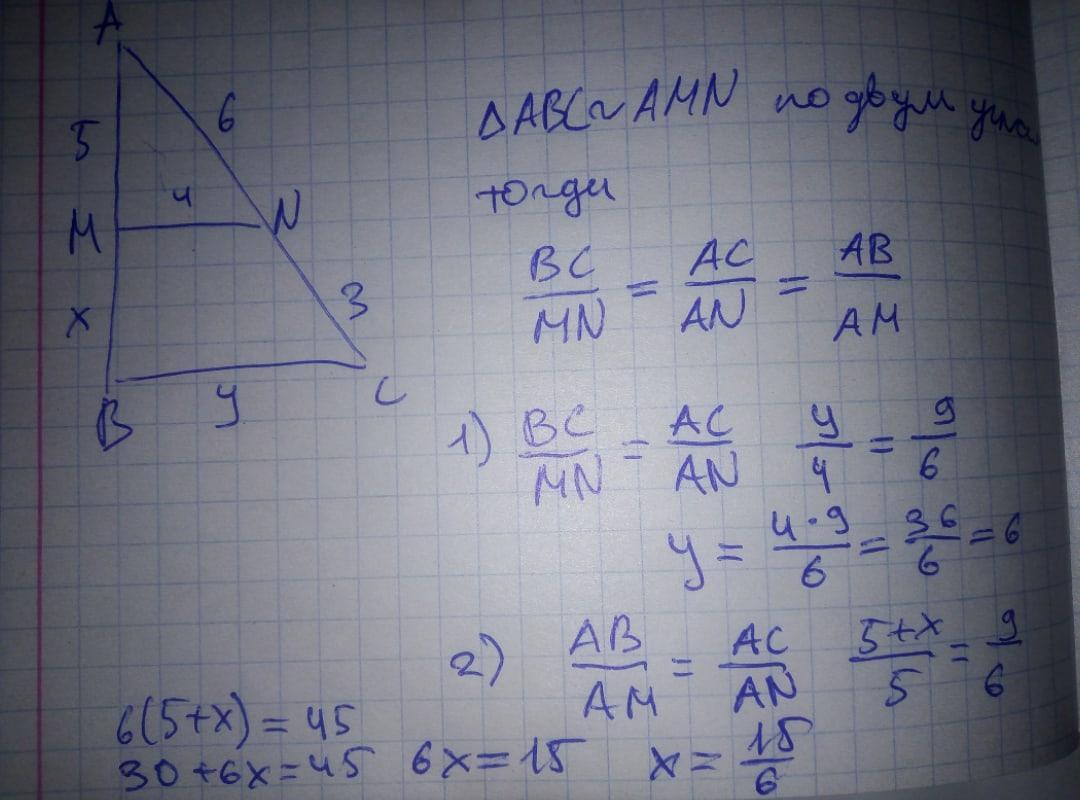 A
6
5
4
M
N
x
3
B
y
C
ΔABC~AMN по двум угла
тогда
BC/MN = AC/AN = AB/AM
1) BC/MN = AC/AN y/4 = 9/6
y = 4·9/6 = 36/6 = 6
2) AB/AM = AC/AN 5+x/5 = 9/6
6(5+x) = 45
30+6x=45 6x=15 x=15/6